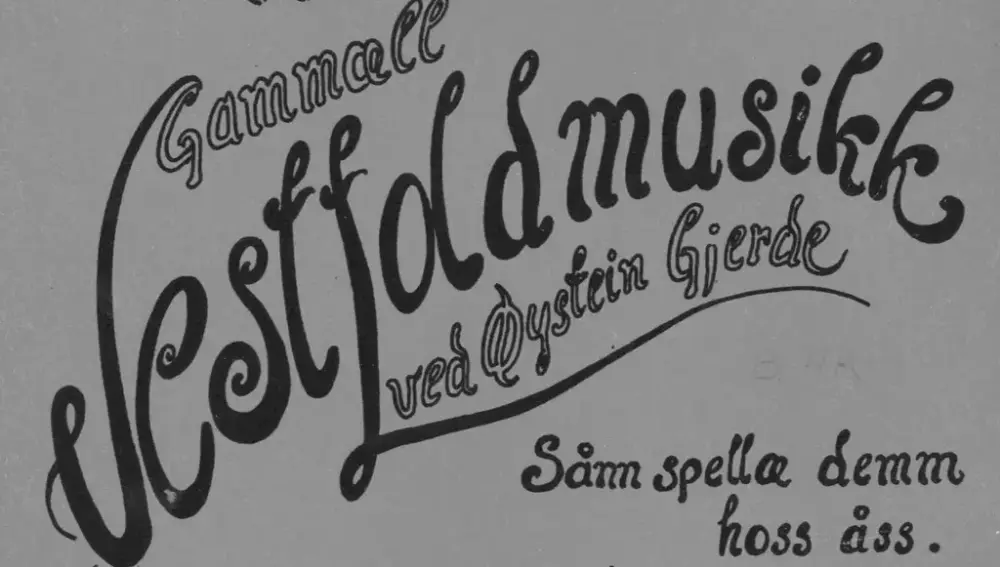 Gammæll
Vestfoldmusikk
ved Øystein Gjerde
Sånn spellæ demm
hoss åss.